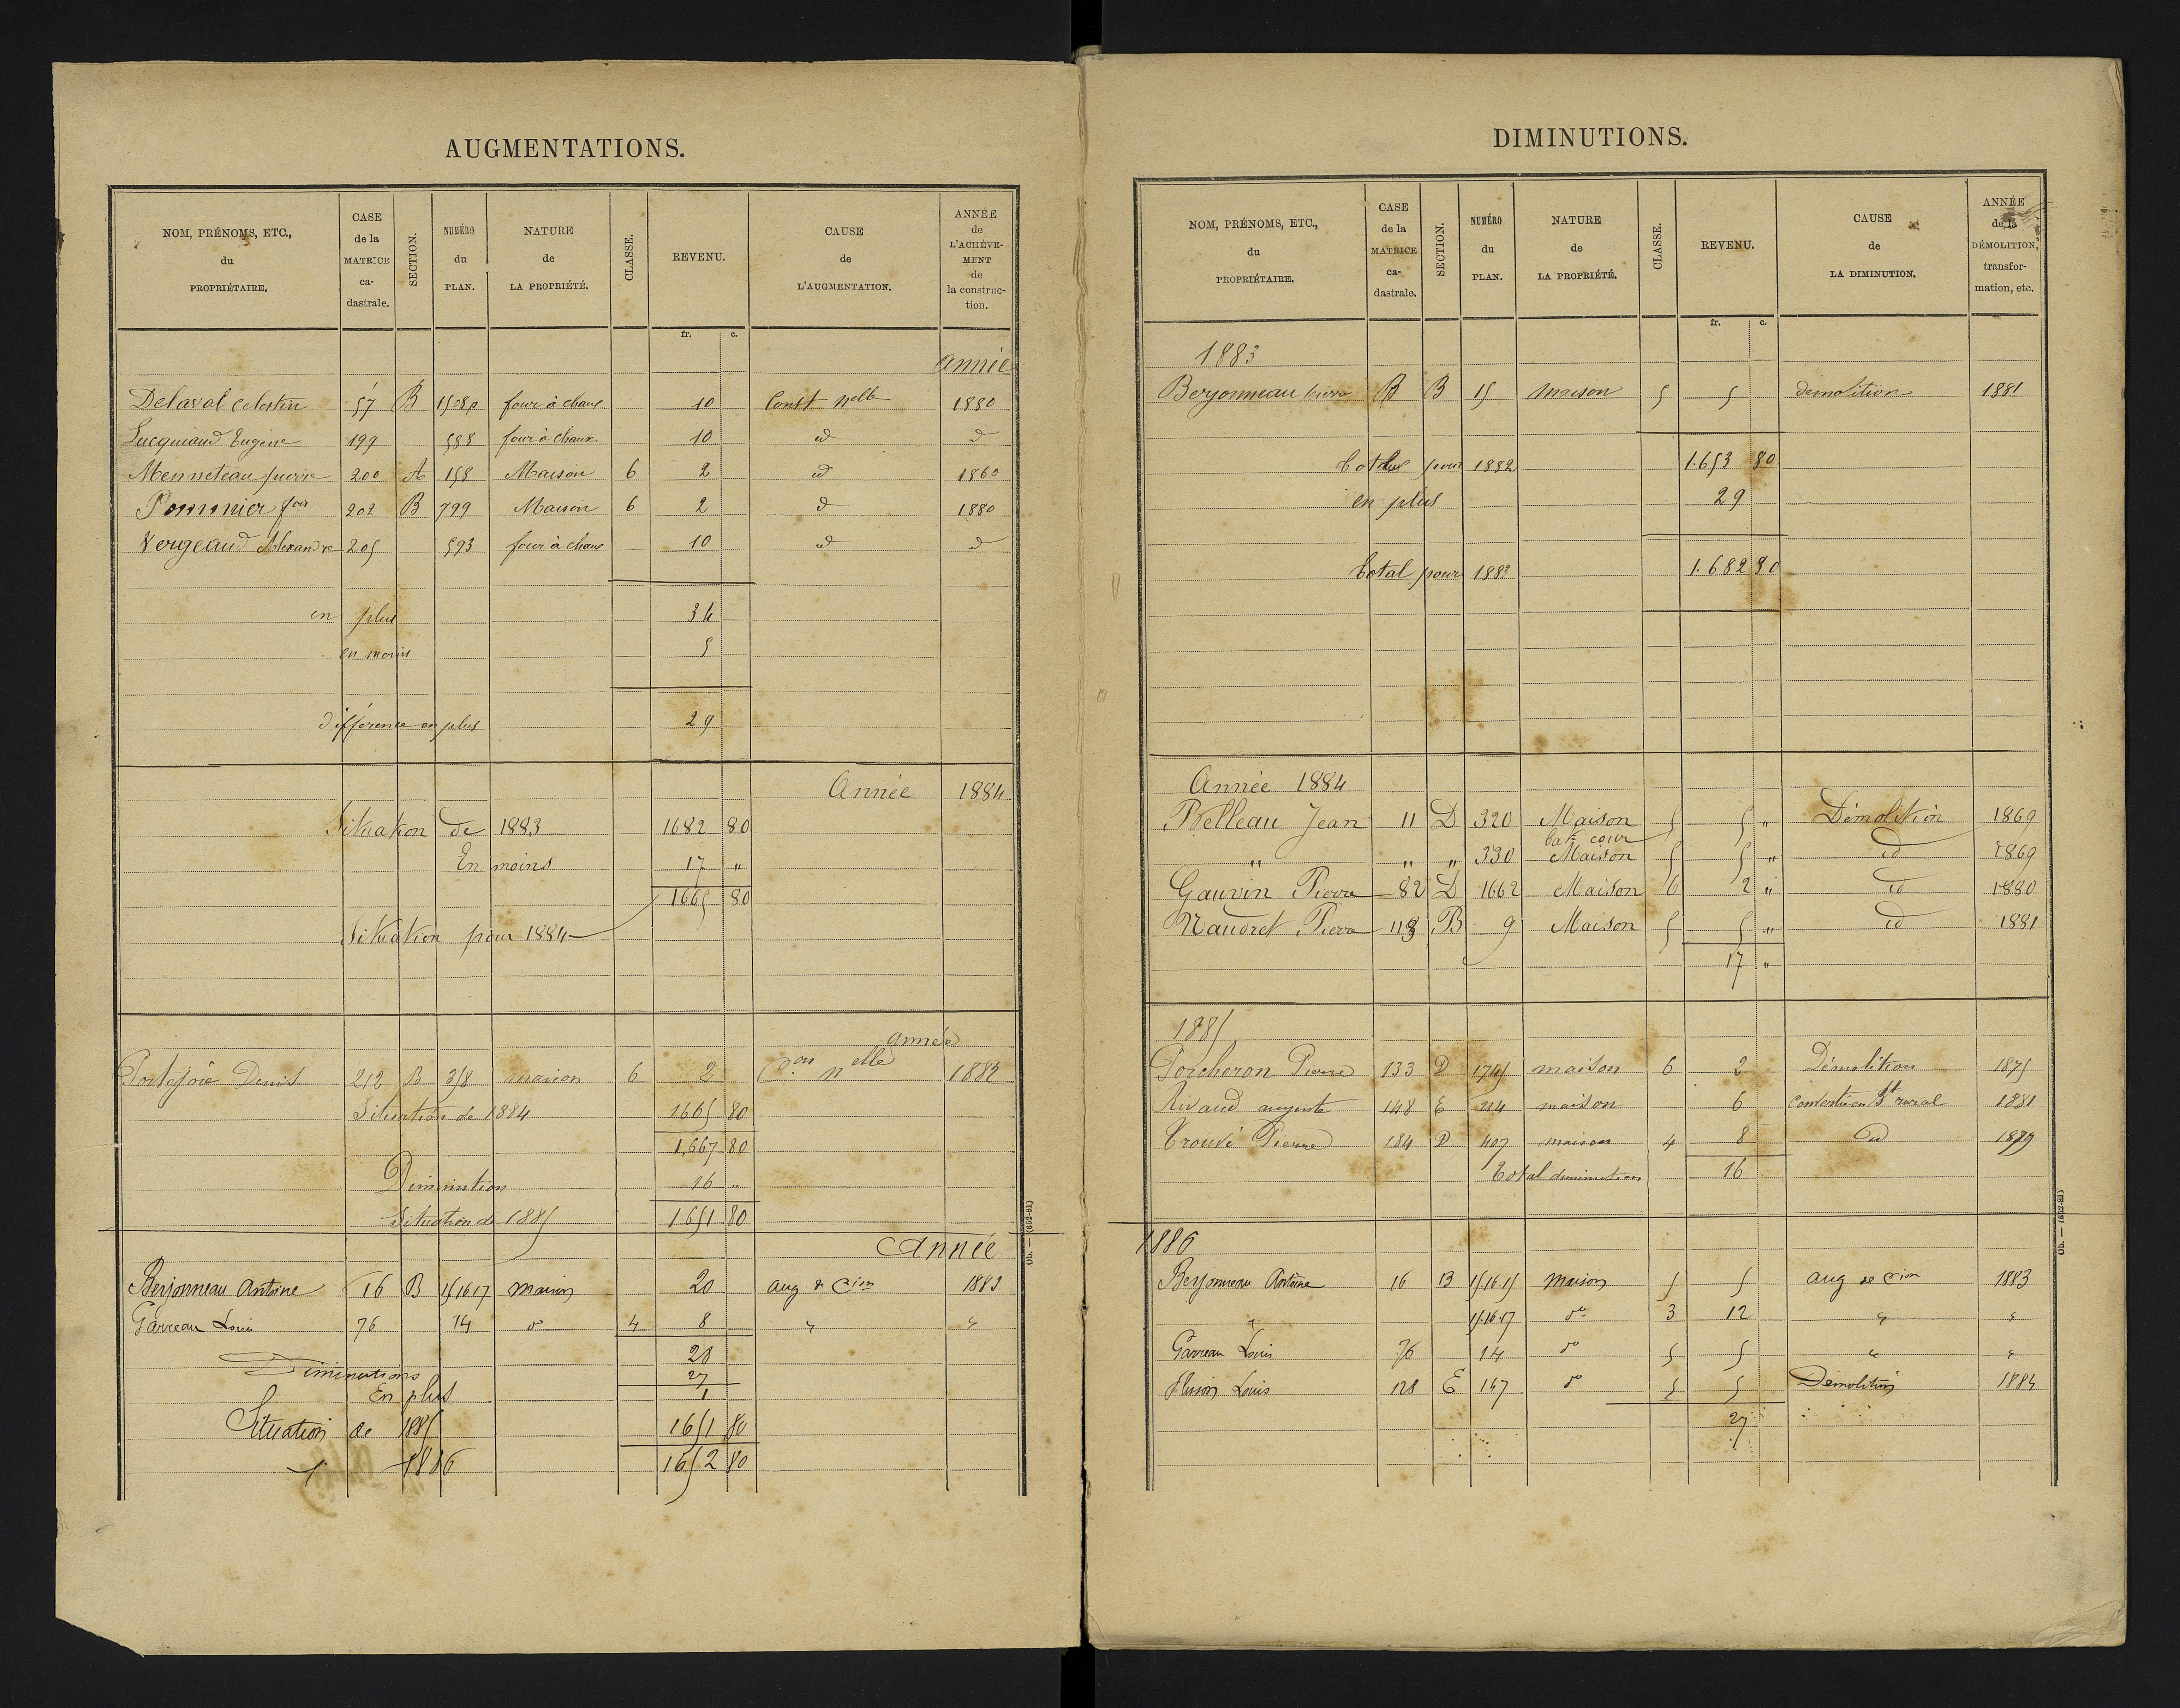 AUGMENTATIONS.
NOM, PRÉNOMS, ETC., du PROPRIÉTAIRE. CASE de la MATRICE ca-dastrale. SECTION. NUMÉRO du PLAN. NATURE de LA PROPRIÉTÉ. CLASSE. REVENU. CAUSE de L'AUGMENTATION. ANNÉE de L'ACHÈVE-MENT de la construc-tion.
fr. c.
année
Delaval Celestin 57 B 1508p four à chaux 10 Const nelle 1880
Lucquiaud Eugene 199 588 four à chaux 10 id d
Menneteau pierre 200 A 158 Maison 6 2 id 1860
Pommier fois 202 B 799 Maison 6 2 d 1880
Vergeaud Alexandre 205 593 four à chaux 10 id d
en plus 34
en moins 5
différence en plus 29
Année 1884
Situation de 1883 1682 80
En moins 17 "
1665 80
Situation pour 1884
année
Portejoie Denis 212 B 358 maison 6 2 Con nelle 1882
Situation de 1884 1665 80
1,667 80
Diminution 16 "
Situation de 1885 1651 80
Année
Berjonneau Antoine 16 B 15 16 17 maison 20 aug de Cion 1883
Garreau Louis 76 14 do 4 8 " "
28
Diminutions 27
En plus 1
Situation de 1885 1651 80
1886 1652 80
Ob. — (652-81)
DIMINUTIONS.
NOM, PRÉNOMS, ETC., du PROPRIÉTAIRE. CASE de la MATRICE ca-dastrale. SECTION. NUMÉRO du PLAN. NATURE de LA PROPRIÉTÉ. CLASSE. REVENU. CAUSE de LA DIMINUTION. ANNÉE de la DÉMOLITION, transfor-mation, etc.
fr. c.
1883
Beryonneau pierre B 15 maison 5 5 demolition 1881
total pour 1882 1.653 80
en plus 29
total pour 1883 1.682 80
Année 1884
Belleau Jean 11 D 320 Maison 5 5 " Démolition 1869
bat. cour
" " " 330 Maison 5 5 " id 1869
Gauvin Pierre 82 D 1662 Maison 6 2 " id 1880
Naudret Pierre 118 B 9 Maison 5 5 " id 1881
17 "
1885
Porcheron Pierre 133 D 1745 maison 6 2 Démolition 1875
Rivaud auguste 148 E 214 maison 6 Conversion bt rural 1881
Trouvé Pierre 184 D 407 maison 4 8 id 1879
Total diminution 16
1886
Berjonneau Antoine 16 B 15.16.15 maison 5 5 aug de Cion 1883
" 15.16.17 do 3 12 " "
Garreau Louis 76 14 do 5 5 " "
Louis 128 E 147 do 5 5 Demolition 1884
27
Ob. — (652-81)